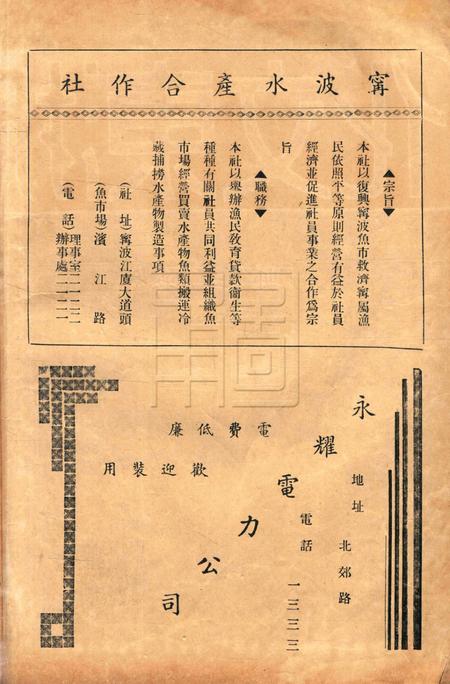 甯波水產合作社
▲宗旨▼
本社以復興甯波魚市救濟甯屬漁
民依照平等原則經營有益於社員
經濟並促進社員事業之合作爲宗
旨
▲職務▼
本社以興辦漁民敎育貸款衞生等
種種有關社員共同利益並組織魚
市場經營買賣水產物魚類搬運冷
藏捕撈水產物製造事項
(社址)甯波江廈大道頭
(魚市場)濱江路
(電話)
理事室
辦事處
永耀電力公司
地址 北郊路
電話 一二三三
電費低廉
歡迎裝用